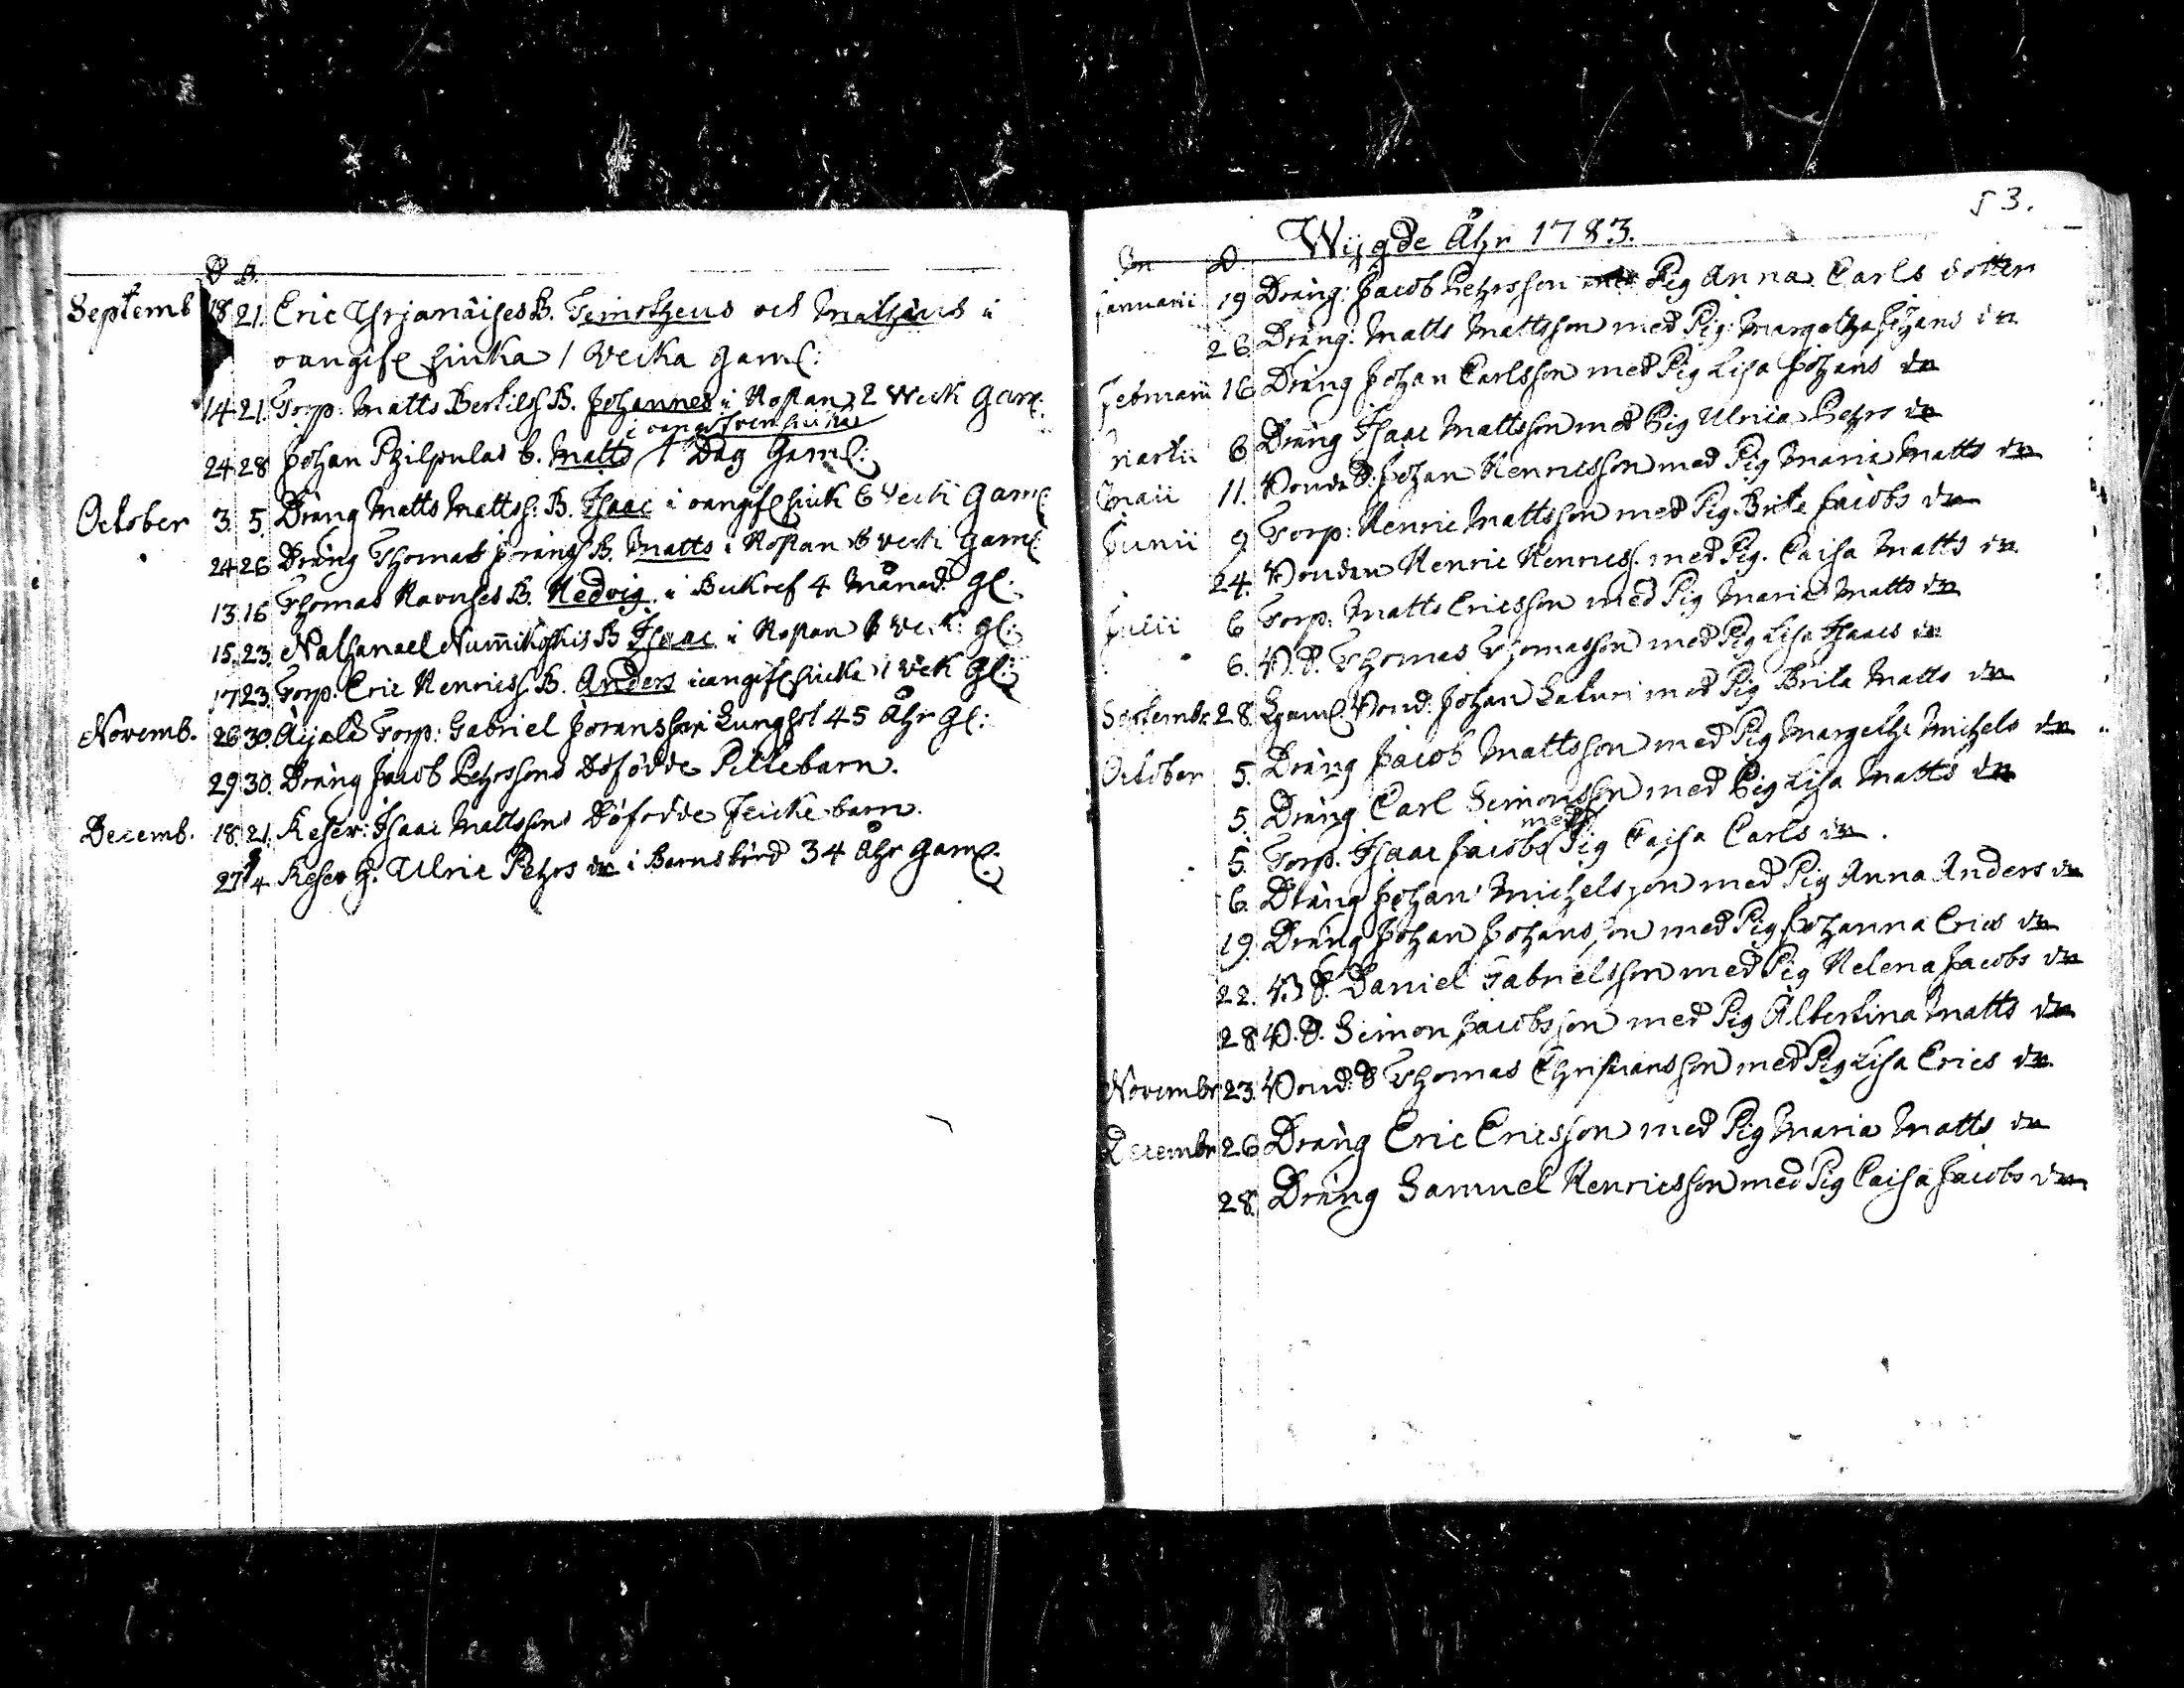 D B.
Septemb 18 21. Eric Yrjänäises B. Timotheus och Mathæus i
oangifl siuka 1 Vecka gaml:
14 21. Torp: Matts Bertilss B. Johannes i Kopan 2 Weck gaml:
i oangifven siuka
24 28 Johan Philpulas b. Matts 1 Dag gaml:
October 3. 5. Dräng Matts Matts: B. Isaac i oangifl siuk 6 Veck gaml:
24 26 Dräng Thomas B. Matts i Kopan Veck gaml:
13 16 Thomas B. Hedvig i 4 Månad gl:
15. 23. Nathanael B Isaac i Kopan Veck: gl:
17 23. Torp. Eric Henrics: B. Anders i oangifl siuka 1 Vek gl:
Novemb. 26 30. Torp: Gabriel Joransson i Lungsot 45 Åhr gl:
29 30. Dräng Jacob Pehrssons Döfödde Piltebarn.
Decemb. 18. 21. Reserv: Isaac Mattssons Döfödde Flickebarn.
27 4 Reser h. Ulric Pehrs dr i Barnsbörd 34 Åhr gaml:
53.
Wijgde Åhr 1783.
D.
Januarii 19 Dräng: Jacob Pehrsson med Pig Anna Carls dotter
26 Dräng: Matts Mattsson med Pig: Margetha Johans dr
Februarii 16 Dräng Johan Carlsson med Pig Lisa Johans dr
Martii 6 Dräng Isaac Mattsson med Pig Ulrica Pehrs dr
Maii 11. Bonde D. Johan Henricsson med Pig Maria Matts dr
Junii 9 Torp: Henric Mattsson med Pig Brita Jacobs dr
24. Bonden Henric Henricss. med Pig. Caisa Matts dr
Julii 6 Torp: Matts Ericsson med Pig Maria Matts dr
6. B. D. Thomas Thomasson med Pig Lisa Isaacs dr
Septembr 28. Bond. Johan Saluri med Pig Brita Matts dr
October 5. Dräng Jacob Mattsson med Pig Margetha Michels dr
5. Dräng Carl Simonsson med Pig Lisa Matts dr
5. Torp. Isaac Jacobs med Pig Caisa Carls dr.
6. Dräng Johan Michelsson med Pig Anna Anders dr
19. Dräng Johan Johansson med Pig Johanna Erics dr
22. B. D. Daniel Gabrielsson med Pig Helena Jacobs dr
28. B. D. Simon Jacobsson med Pig Albertina Matts dr
Novembr 23. Bond: D Thomas Christiansson med Pig Lisa Erics dr
Decembr 26 Dräng Eric Ericsson med Pig Maria Matts dr
28. Dräng Samuel Henricsson med Pig Caisa Jacobs dr